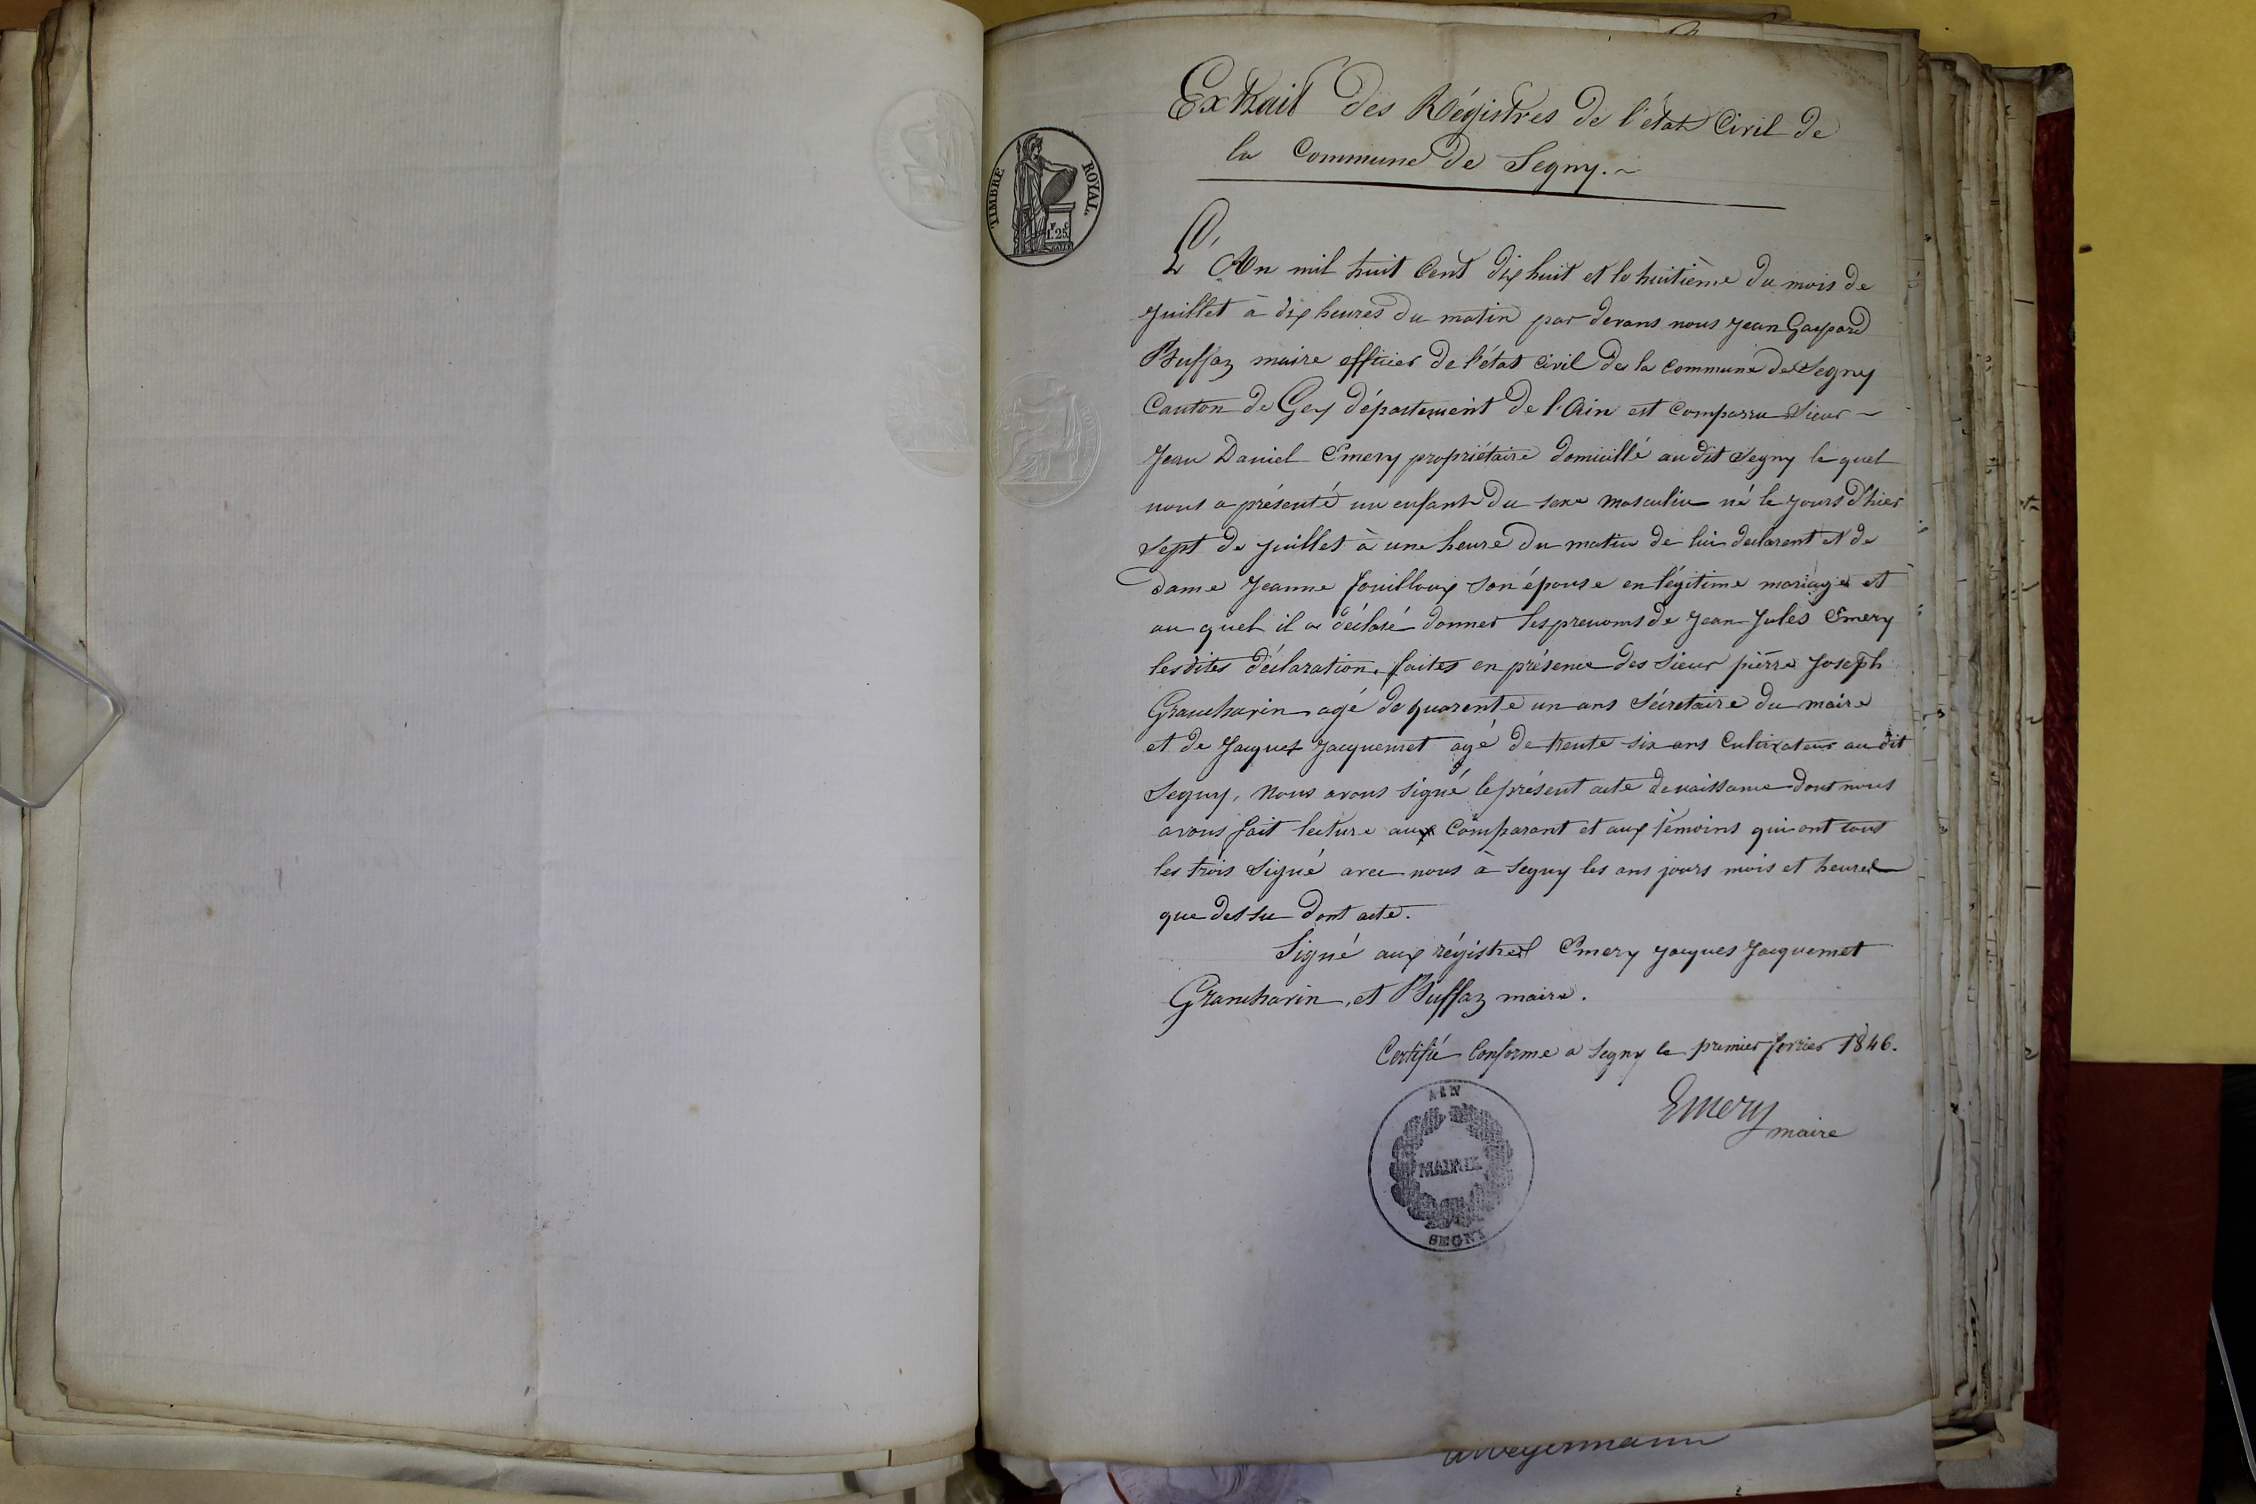 Extrait des Régistres de l'état Civil de
la Commune de Segny.~
TIMBRE ROYAL.
1.25
L'An mil huit Cent dix huit et le huitième du mois de
juillet à dix heures du matin par devans nous Jean Gaspard
Buffaz maire officier de l'état Civil de la Commune de Segny
Canton de Gex département de l'Ain est Comparru Sieur ~
Jean Daniel Emery propriétaire domicillé au dit Segny le quel
nous a présenté un enfant du sexe masculin né le jours d'hier
Sept de juillet à une heure du matin de lui declarent et de
Dame Jeanne Jouilloux son épouse en légitime mariage et
au quel il a déclaré donner les prenoms de Jean Jules Emery
lesdites déclaration faites en présence des Sieur pièrre Joseph
Grancharin agé de quarente un ans Sécretaire du maire
et de Jacques Jacquemet agé de trente six ans Cultivateur au dit
Segny, Nous avons signé le présent acte de naissance dont nous
avons fait lecture aux Comparant et aux témoins qui ont tous
les trois Signé avec nous à Segny les ans jours mois et heures
que dessu dont acte.
Signé aux régistres Emery Jacques Jacquemet
Grancharin, et Buffaz maire.
Certifié Conforme a Segny le premier fevrier 1846.
Emery
maire
AIN
MAIRIE
SEGNY